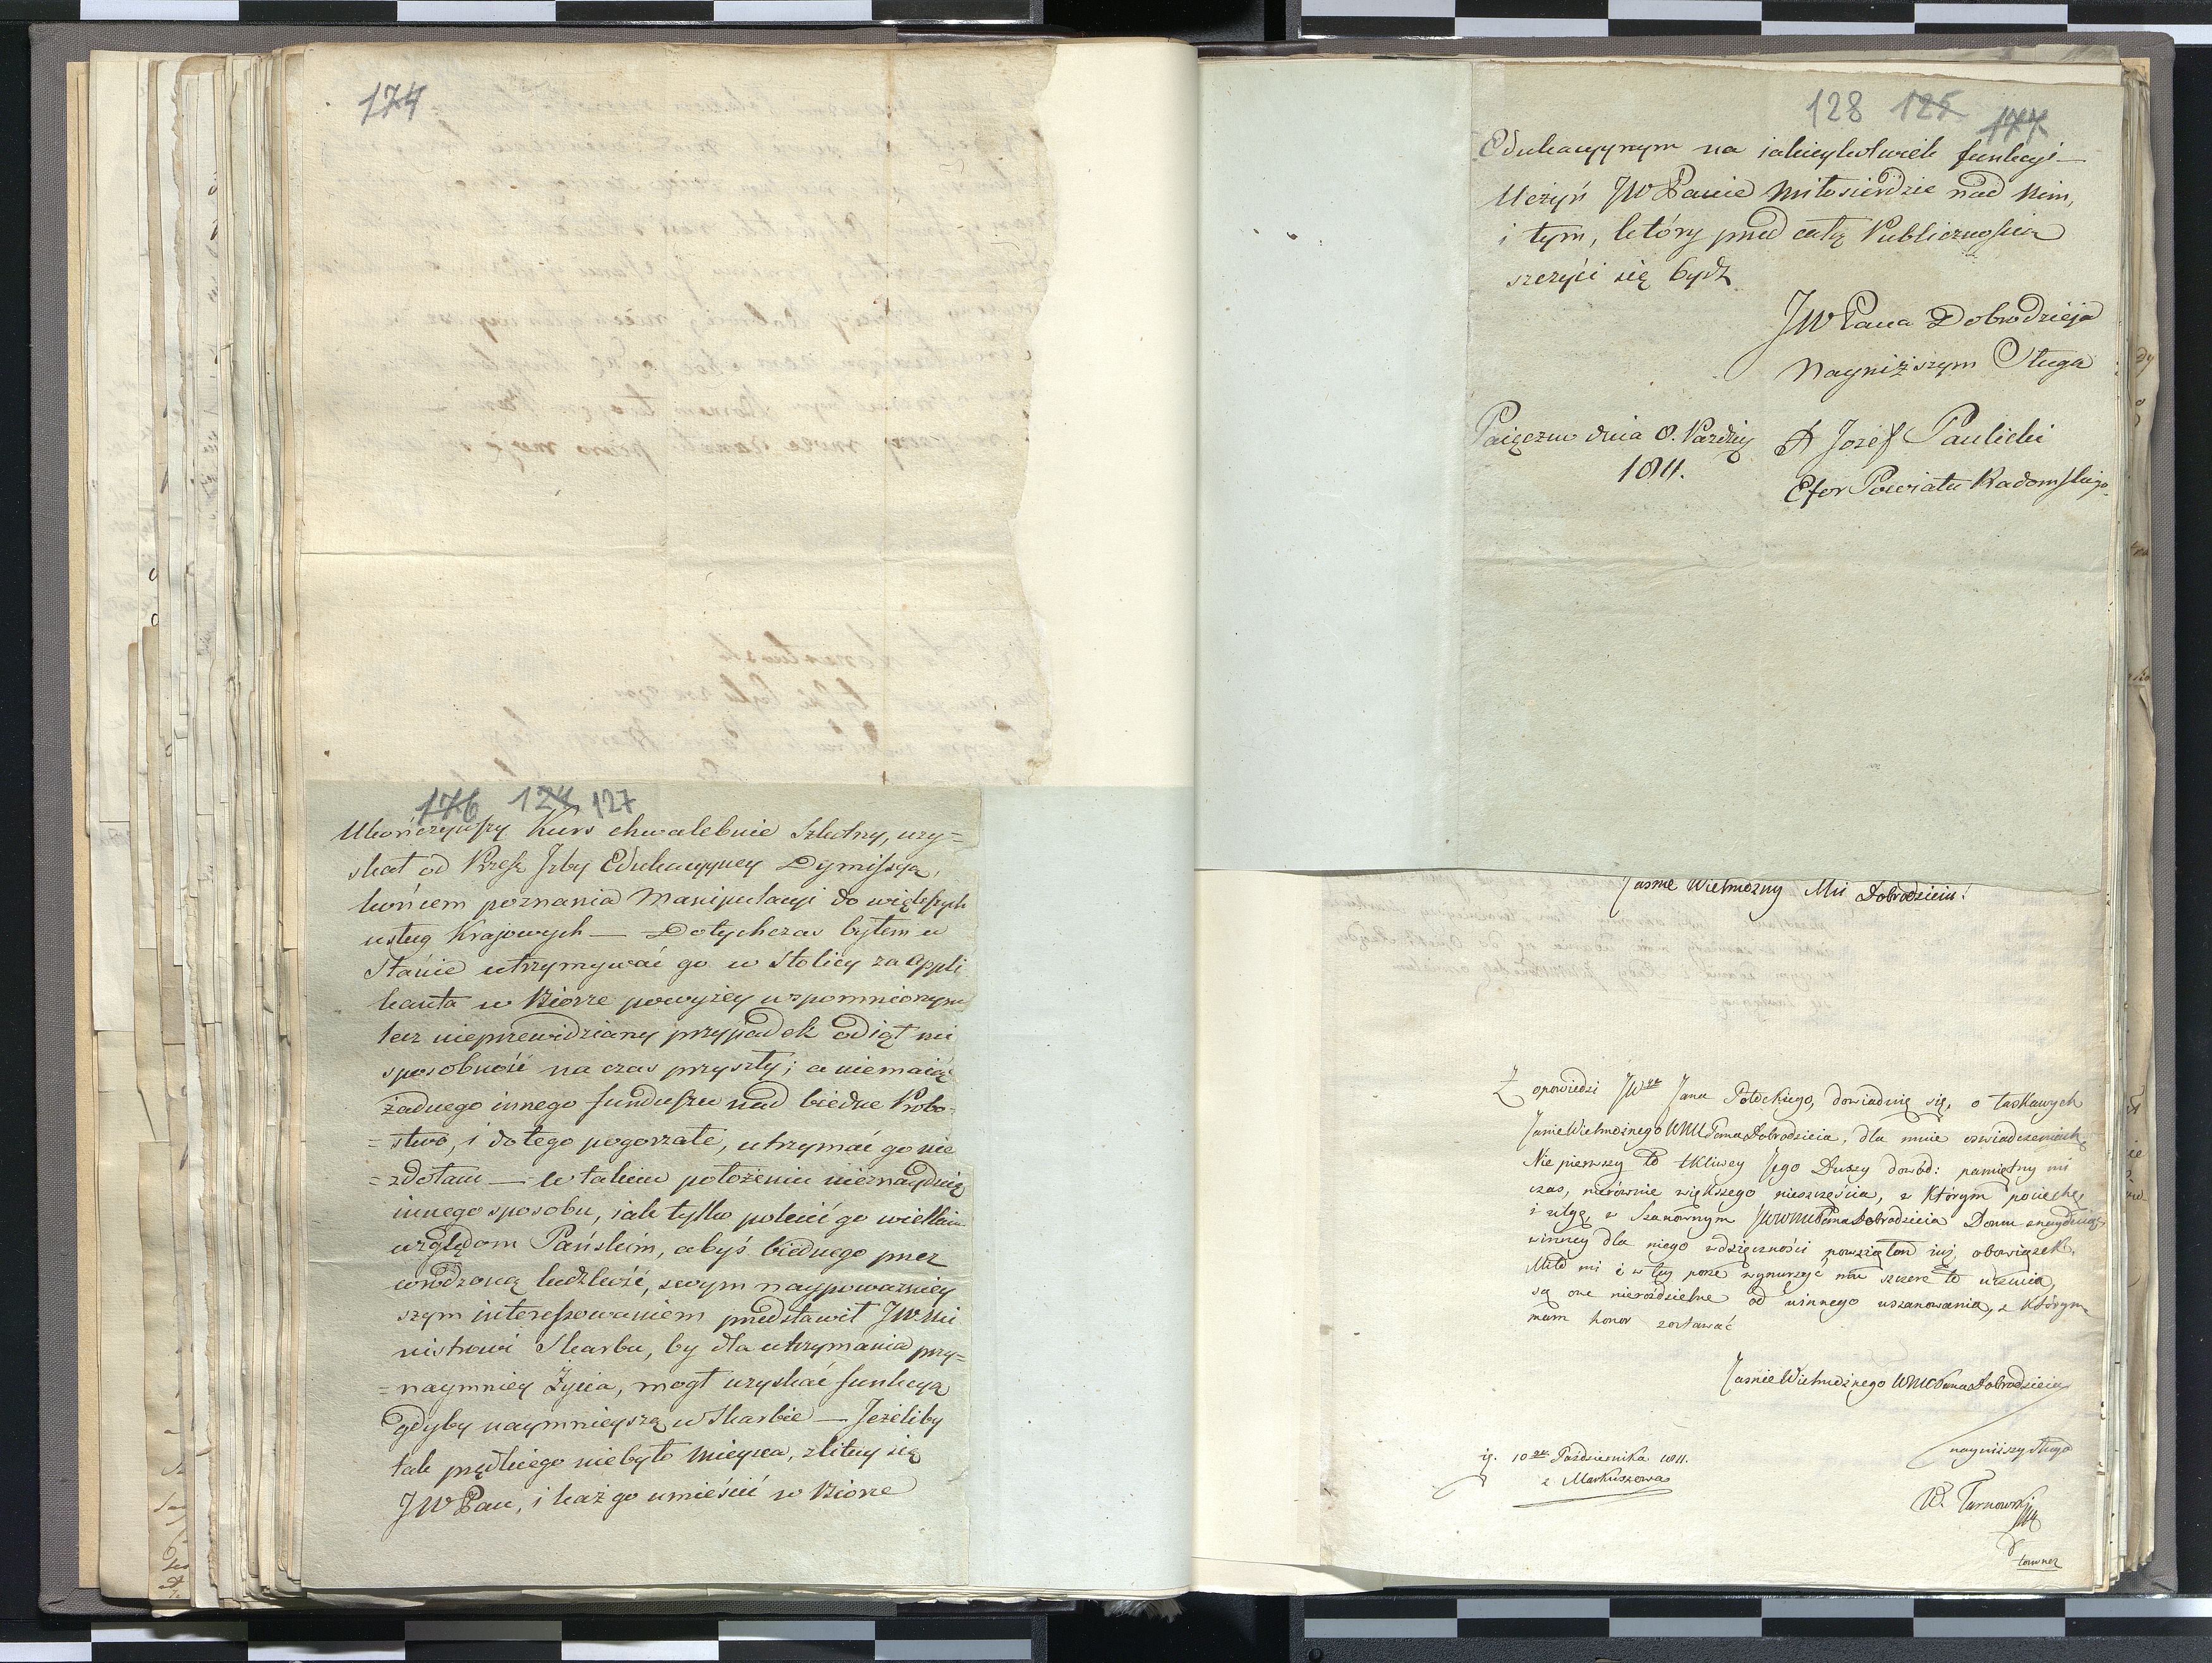 174
176 124 127
Ukończywszy kurs chwalebnie Szkolny, uzy=
skał od Prześ: Izby Edukacyyney Dymissyą,
końcem poznania Manipulacyi do większych
usług Krajowych — Dotychczas byłem w
Stanie utrzymywać go w Stolicy za Appli
kanta w Biorze powyżey wspomnionym
lecz nieprzewidziany przypadek odiął mi
sposobność na czas przyszły; a niemaiąc
żadnego innego funduszu nad biedne Probo=
=stwo, i do tego pogorzałe, utrzymać go nie
=zdołam — w takim położeniu nieznayduię
innego sposobu, iak tylko polecić go wielkim
względom Pańskim, abyś biednego przez
wrodzoną ludzkość, swym naypoważniey
szym interessowaniem przedstawił JW. Mi
nistrowi Skarbu, by dla utrzymania przy=
=naymniey Życia, mogł uzyskać funkcyą
gdyby naymnieyszą w Skarbie — Jeżeliby
tak prędkiego niebyło mieysca, zlituy się
JW Pan, i każ go umieścić w Biorze
128 125 177
Edukacyynym na iakieykolwiek funkcyi —
Uczyń JW Panie miłosierdzie nad Nim,
i tym, który przed całą Publicznością
szczyci się bydź
JW Pana Dobrodzieja
Nayniższym Sługą
Paięczno dnia 8. Paźdź
1811.
X Jozef Paulicki
Efor Powiatu Radomskiego
Jasnie Wielmożny Mci Dobrodzieiu!
Z opowiedzi JWgo Jana Potockiego, dowiaduię się, o łaskawych
Jasnie Wielmożnego WMM Pana Dobrodzieia, dla mnie oswiadczeniach,
Nie pierwszy to tkliwey Jego Duszy dowód: pamiętny mi
czas, nierównie większego nieszczęścia, w którym pociechę,
i ulgę w Szanownym JWWMM Pana Dobrodzieia Domu znayduiąc,
winney dla niego wdzięczności powziąłem iuż, obowiązek.
Miło mi i w tey porze wynurzyć mu szczere to uczucia,
są one nierozdzielne od winnego uszanowania, z którym
mam honor zostawać
Jasnie Wielmożnego WMM Pana Dobrodzieia
nayniższy sługa
10 Października 1811.
z Markuszowa
W. Tarnowski